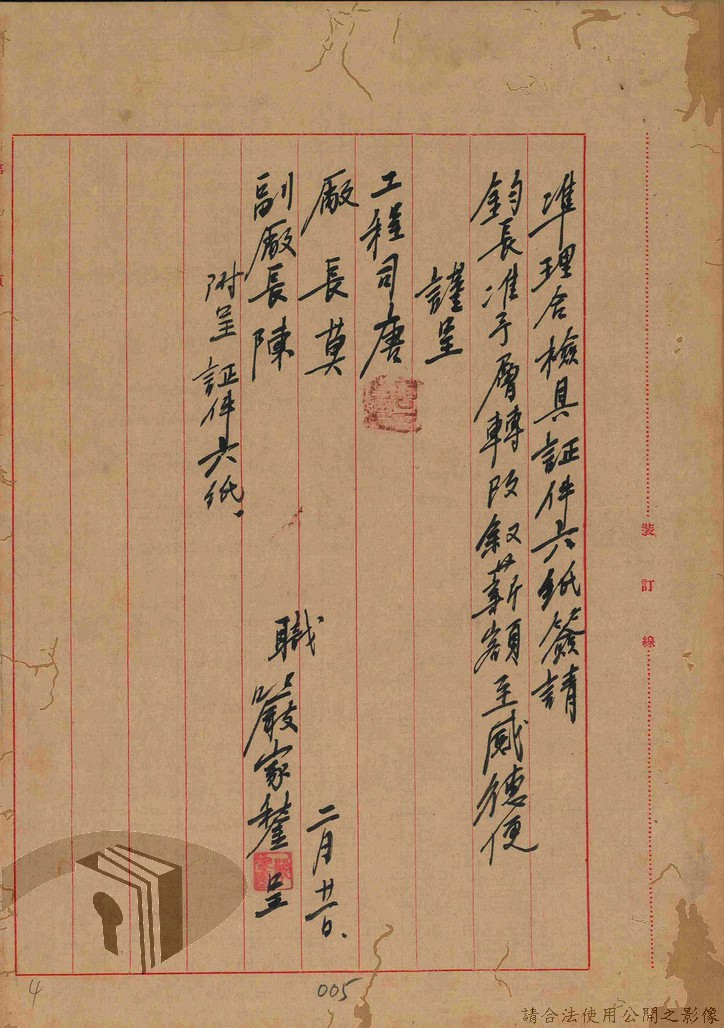 準理合檢具証件六紙簽請
鈞長准予層轉改敘薪額至感德便
謹呈
工程司唐
廠長莫
副廠長陳
附呈証件六紙.
職嚴家 呈
二月廿一日.
裝訂線
4
005
請合法使用公開之影像